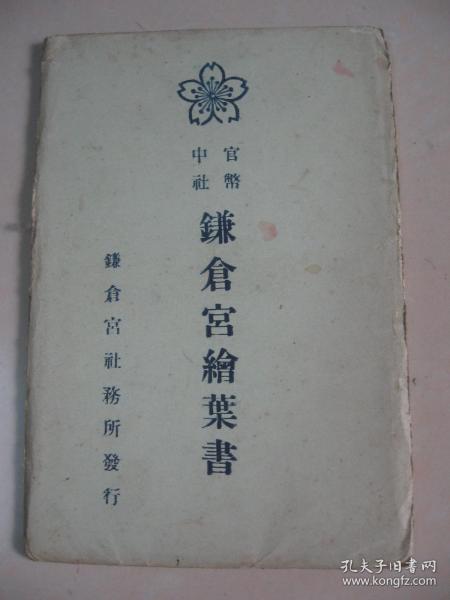 官幣
中社
鎌倉宮繪葉書
鎌倉宮社務所發行
孔夫子旧书网
www.kongfz.com